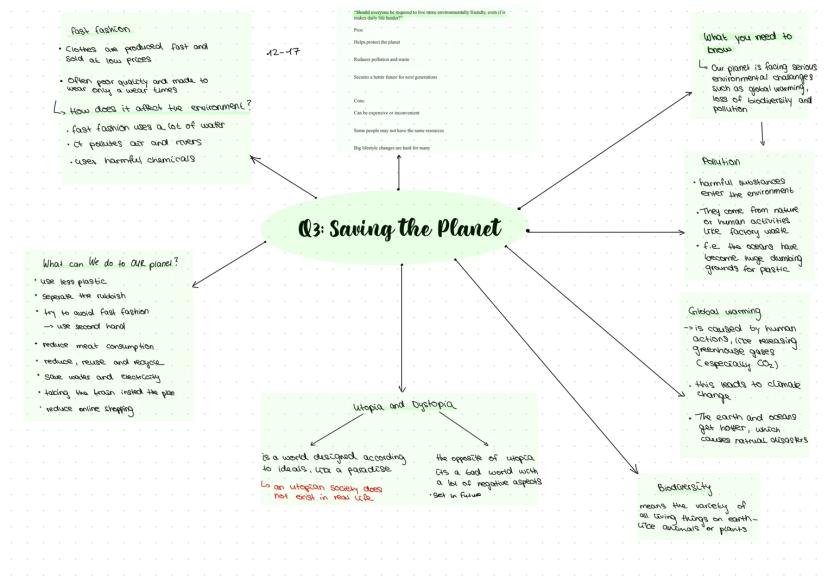 Fast fashion
• Clothes are produced fast and
sold at low prices
• Often poor quality and made to
wear only a wear times
↳ How does it affect the environment?
• fast fashion uses a lot of water
• it pollutes air and rivers
• uses harmful chemicals
12-17
"Should everyone be required to live more environmentally friendly, even if it
makes daily life harder?"
Pros:
Helps protect the planet
Reduces pollution and waste
Secures a better future for next generations
Cons:
Can be expensive or inconvenient
Some people may not have the same resources
Big lifestyle changes are hard for many
What you need to
know
↳ Our planet is facing serious
environmental challanges
such as global warming,
loss of biodiversity and
pollution
Pollution
• harmful substances
enter the environment
• They come from nature
or human activities
like factory waste
• f.e. the oceans have
become huge dumbing
grounds for plastic
Q3: Saving the Planet
What can We do to OUR planet?
• use less plastic
• seperate the rubbish
• try to avoid fast fashion
→ use second hand
• reduce meat consumption
• reduce, reuse and recycle
• save water and electricity
• taking the train insted the plae
• reduce online shopping
Global warming
→ is caused by human
actions, like releasing
greenhouse gases
(especially CO₂)
• this leads to climate
change
• The earth and oceans
get hotter, which
causes natrual disasters
Utopia and Dystopia
is a world designed according
to ideals, like a paradise
↳ an utopian society does
not exist in real life
the opposite of utopia
its a bad world with
a lot of negative aspects
• set in future
Biodiversity
means the variety of
all living things on earth-
like animals or plants